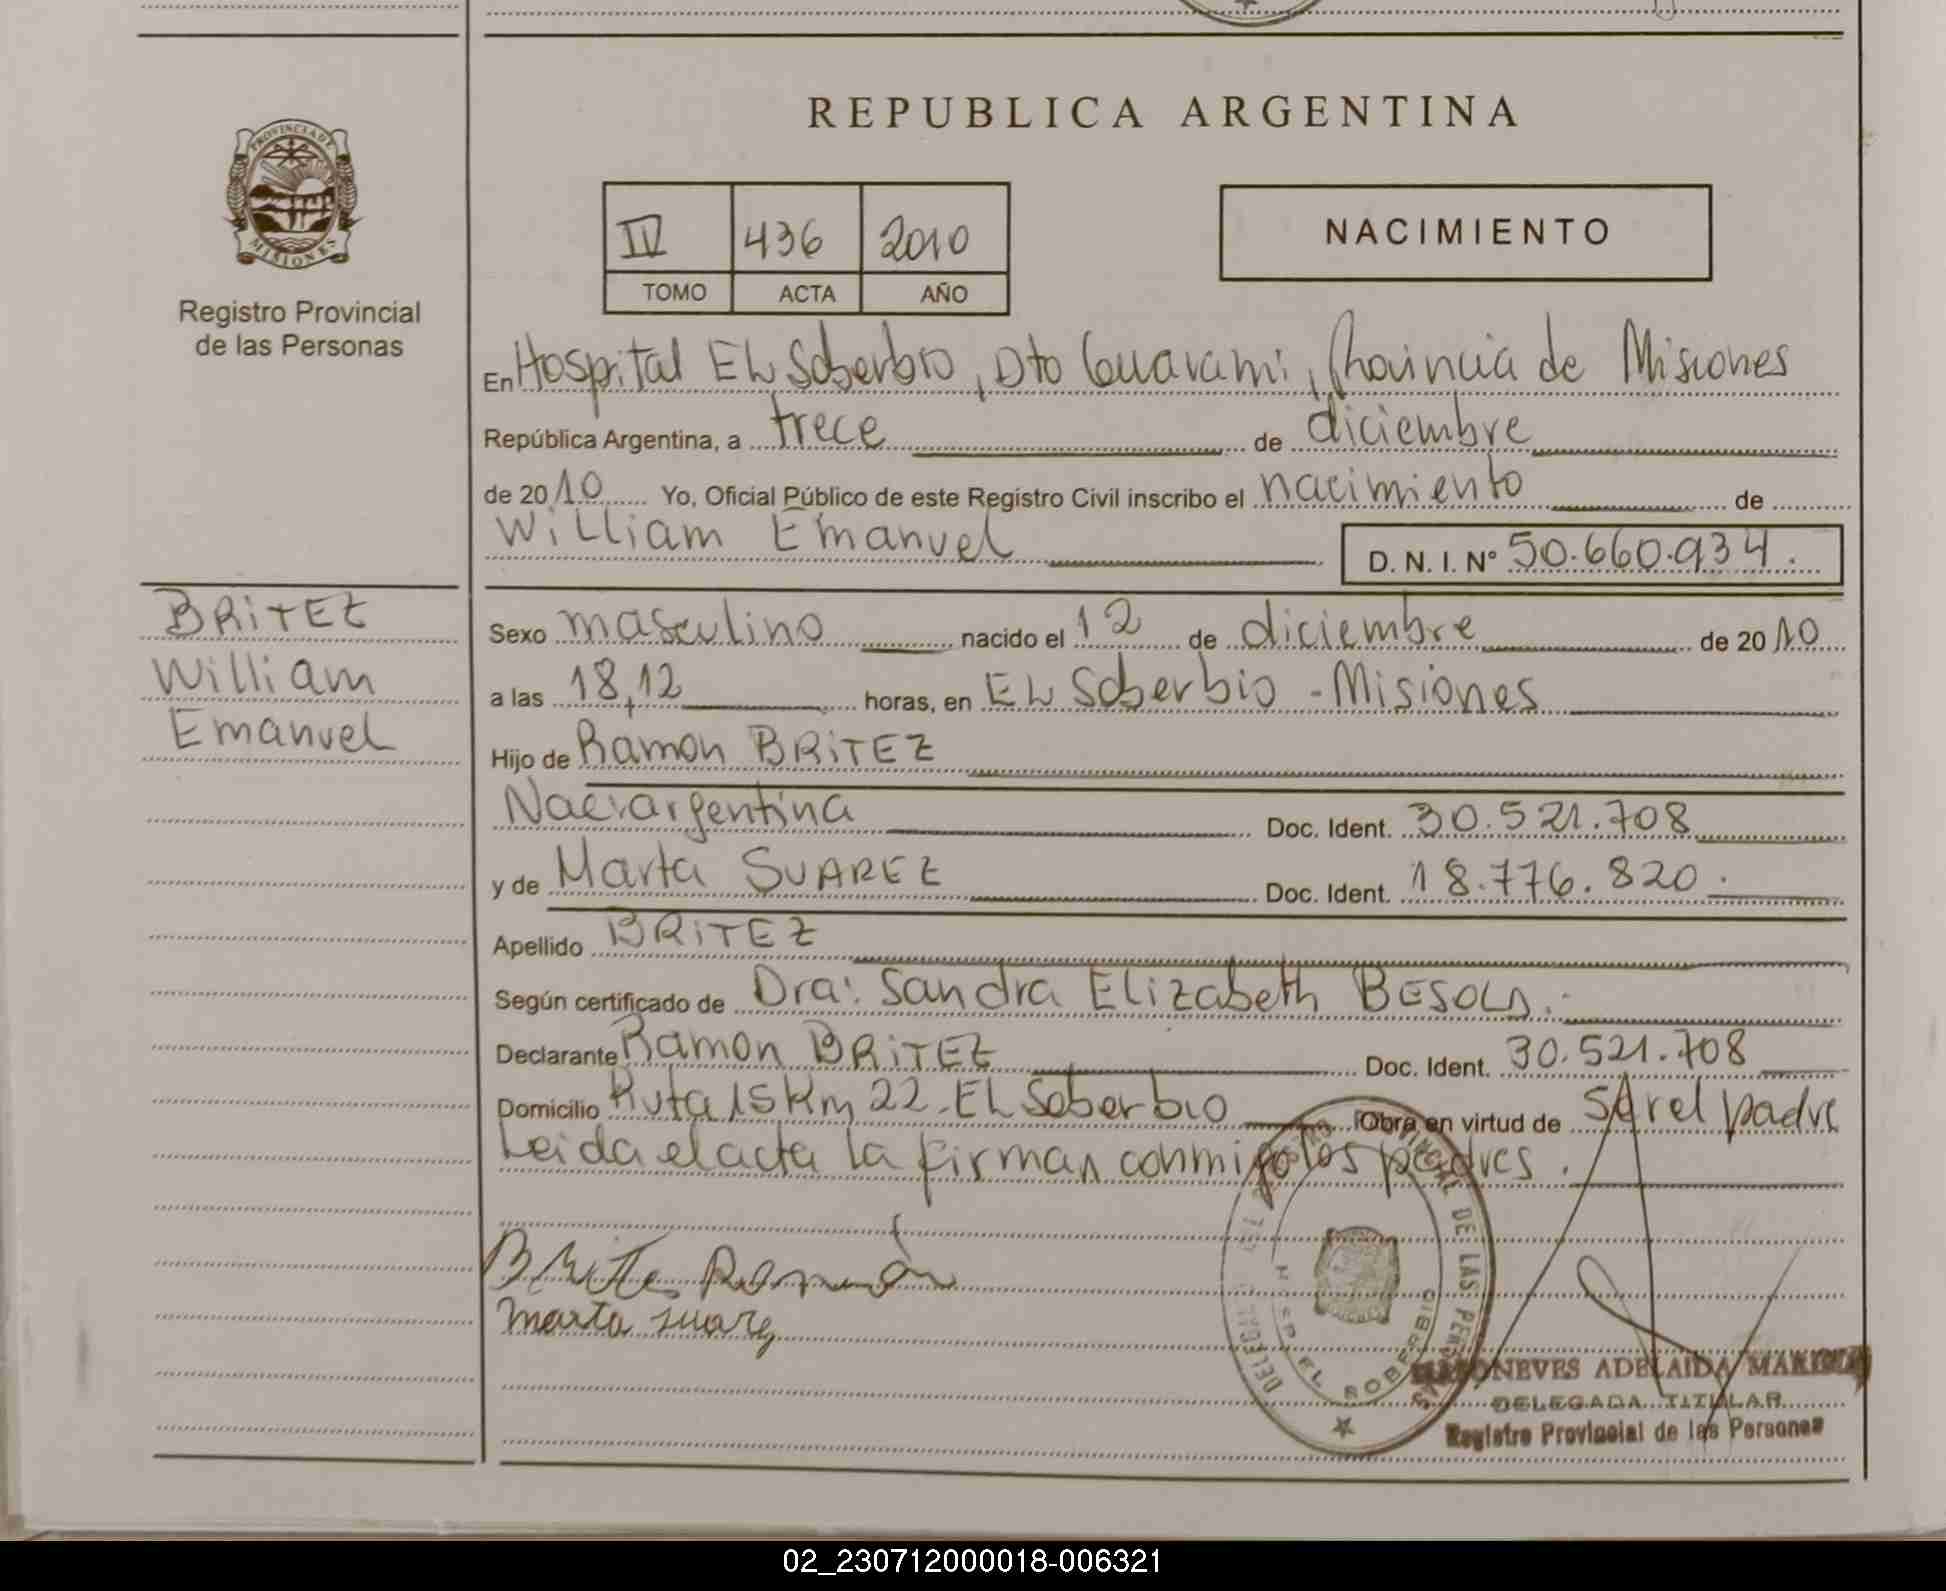 REPUBLICA ARGENTINA
PROVINCIA DE
MISIONES
Registro Provincial
de las Personas
IV 436 2010
TOMO ACTA AÑO
NACIMIENTO
En Hospital EL Soberbio, Dto Guarani, Provincia de Misiones
República Argentina, a trece de diciembre
de 2010 Yo, Oficial Público de este Registro Civil inscribo el nacimiento de
William Emanuel D. N. I. N° 50.660.934.
BRITEZ
William
Emanuel
Sexo masculino nacido el 12 de diciembre de 2010
a las 18,12 horas, en EL Soberbio - Misiones
Hijo de Ramon BRITEZ
Nac: argentina Doc. Ident. 30.521.708
y de Marta SUAREZ Doc. Ident. 18.776.820.
Apellido BRITEZ
Según certificado de Dra: Sandra Elizabeth BESOLD.
Declarante Ramon BRITEZ Doc. Ident. 30.521.708
Domicilio Ruta 15 Km 22. EL Soberbio Obra en virtud de Ser el padre
Leida el acta la firman conmigo los padres.
Britez Ramón
marta suarez
PROVINCIAL DE LAS PERSONAS
HOSP. EL SOBERBIO
NEVES ADELAIDA
DELEGADA TITULAR
Registro Provincial de las Personas
02_230712000018-006321